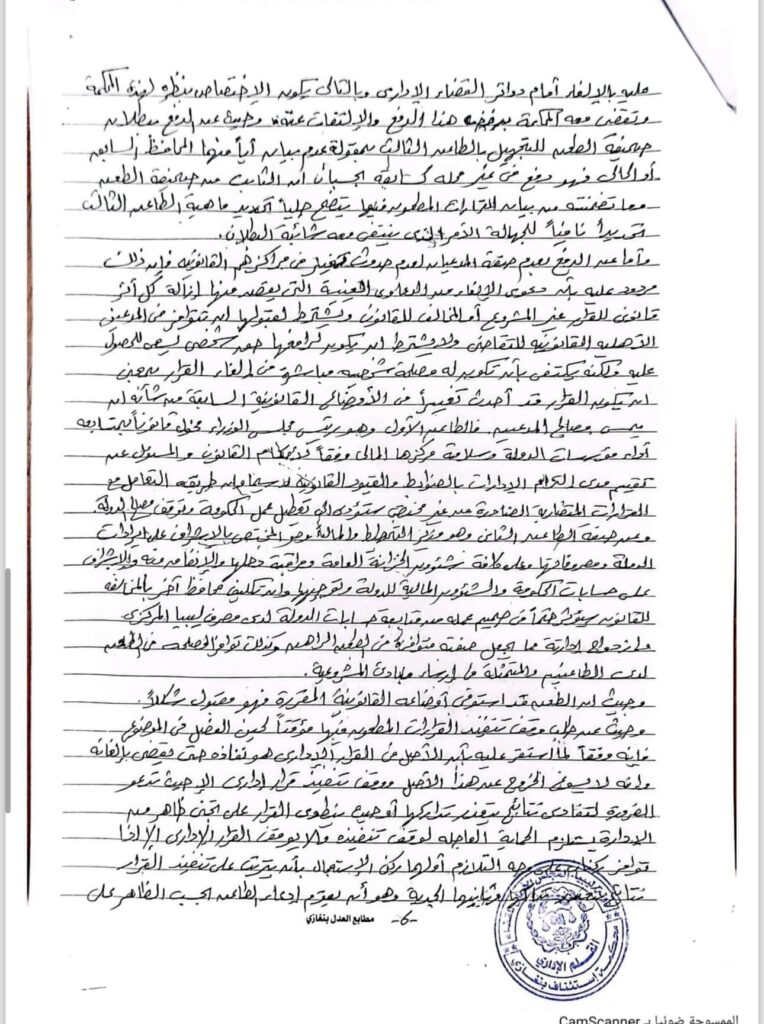 عليه بالإلغاء أمام دوائر القضاء الإداري وبالتالي يكون الإختصاص بنظره لهذه المحكمة
وتقضى معه المحكمة برفض هذا الدفع والإلتفات عنه، وحيث عن الدفع ببطلان
صحيفة الطعن للتجهيل بالطاعن الثالث بمقولة عدم بيان أياً منها المحافظ السابق
أو الحالي فهو دفع في غير محله كسابقه الحسبان أن الثابت من صحيفة الطعن
وما تضمنته من بيان للقرارات المطعون فيها يتضح جلياً تحديد ماهية الطاعن الثالث
تحديداً نافياً للجهالة الأمر الذى ينتفى معه شائبة البطلان.
وأما عن الدفع بعدم صفة المدعيان لعدم حدوث تغيير في مراكزهم القانونية فإن ذلك
مردود عليه بأن دعوى الإلغاء من الدعاوى العينية التى يقصد منها إزالة كل أثر
قانونى للقرار غير المشروع أو المخالف للقانون ويشترط لقبولها ان تتوافر في المدعين
الأهلية القانونية للتقاضى ولا يشترط ان يكون لرافعها حق شخصى يسعى للحصول
عليه ولكنه يكتفى بأن تكون له مصلحة شخصية مباشرة في إلغاء القرار بمعنى
ان يكون القرار قد أحدث تغييراً في الأوضاع القانونية السابقة من شأنه ان
يمس مصالح المدعيين فالطاعن الأول وهو رئيس مجلس الوزراء مخول قانوناً بمتابعة
أداء مؤسسات الدولة وسلامة مركزها المالى وفقاً لأحكام القانون والمسئول عن
تقييم مدى التزام الإدارات بالضوابط والقيود القانونية لاسيما ان طريقه التعامل مع
القرارات الصادرة من غير مختص ستؤدى الي تعطل عمل الحكومة وتوقف مصالح الدولة.
وعن صفة الطاعن الثانى وهو وزير التخطيط والمالية وهو المختص بالإشراف على ايرادات
الدولة ومصروفاتها وعلى كافة شئون الخزانة العامة ومراقبة دخلها والإنفاق منه والإشراف
على حسابات الحكومة والشئون المالية للدولة وتوجيهها وان تكليف محافظ آخر بالمخالفة
للقانون سيؤثر حتماً في صميم عمله من متابعة حسابات الدولة لدى مصرف ليبيا المركزي
وازدواج إدارية مما يجعل صفته متوافرة في الطعن الراهن وكذلك توافر المصلحة في الطعن
لدى الطاعنين والمتمثلة في إرساء مبادئ المشروعية.
وحيث ان الطعن قد استوفى أوضاعه القانونية المقررة فهو مقبول شكلاً.
وحيث عن طلب وقف تنفيذ القرارات المطعون فيها مؤقتاً لحين الفصل في الموضوع
فإنه وفقاً لما استقر عليه بأن الأصل في القرار الإدارى هو نفاذه حتى يقضى بإلغائه
وانه لا يسوغ الخروج عن هذا الأصل ووقف تنفيذ قرار ادارى الا حيث تدعو
الضرورة لتفادى نتائج يتعذر تداركها أو حيث ينطوى القرار على تجنى ظاهر من
الإدارة يستلزم الحماية العاجلة لوقف تنفيذه ولا يوقف القرار الإدارى إلا إذا
توافر ركنان على وجه التلازم أولهما ركن الإستعجال بأن يترتب على تنفيذ القرار
نتائج يتعذر تداركها وثانيهما الجدية وهو أن يقوم ادعاء الطاعن بحسب الظاهر على
-6-
مطابع العدل بنغازي
القلم الإداري
محكمة إستئناف بنغازي
الممسوحة ضوئيا بـ CamScanner